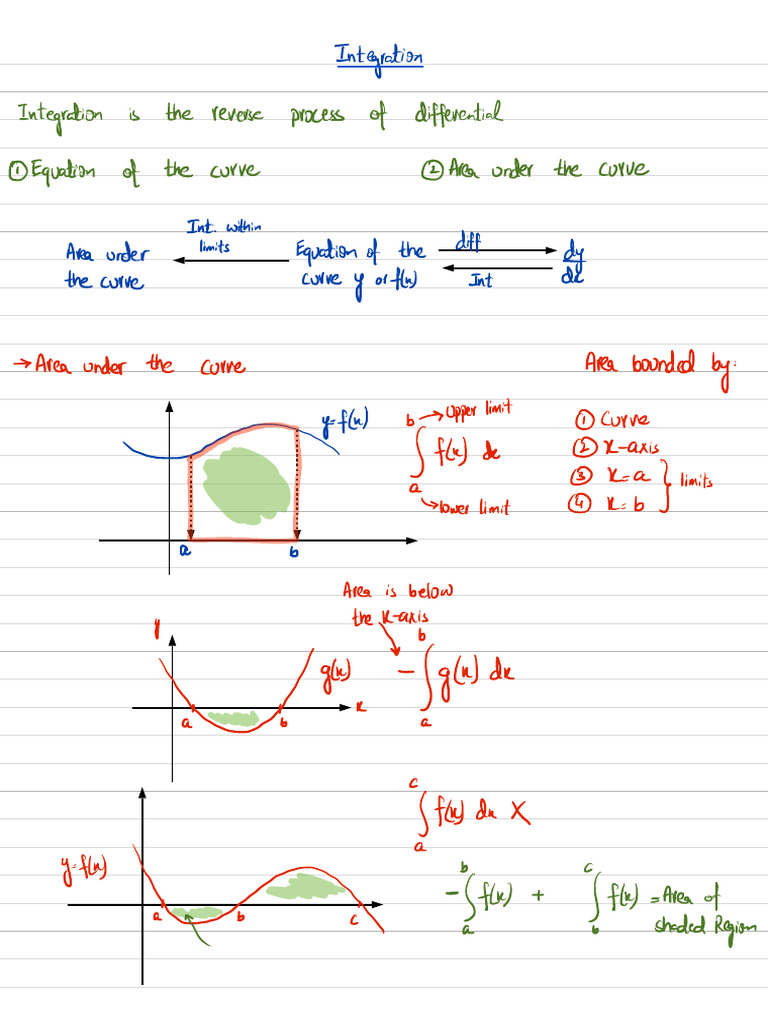 Integration
Integration is the reverse process of differential
① Equation of the curve ② Area under the curve
Int. within limits
Area under the curve
Equation of the curve y or f(x)
diff
Int
dy/dx
→ Area under the curve
Area bounded by:
y=f(x)
a b
b → Upper limit
∫ f(x) dx
a → lower limit
① Curve
② x-axis
③ x=a
④ x=b
} limits
Area is below
the x-axis
y
g(x)
x
a b
b
-∫ g(x) dx
a
c
∫ f(x) dx X
a
y=f(x)
a b c
b c
-∫ f(x) + ∫ f(x) = Area of
a b shaded Region